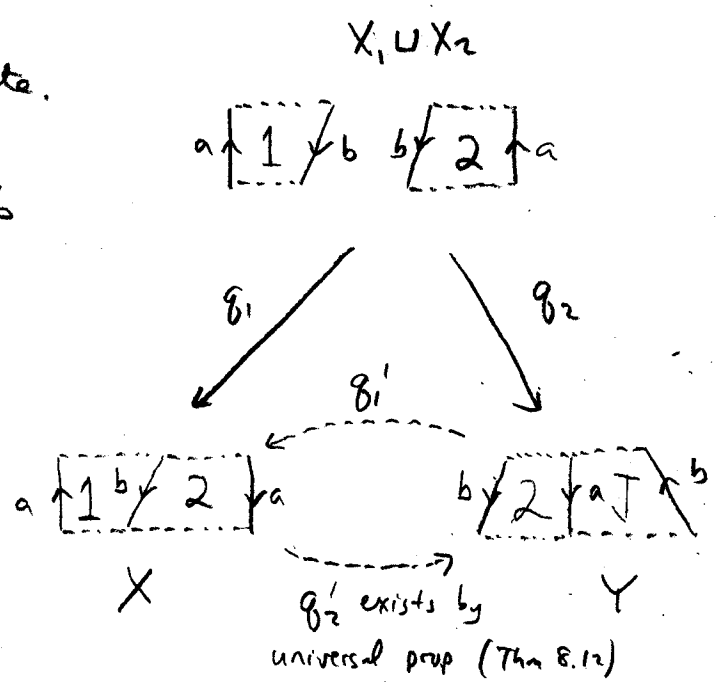 X₁ ⊔ X₂
te.
a 1 b b 2 a
q₁ q₂
q₁'
a 1 b 2 a b 2 a b
X Y
q₂' exists by
universal prop (Thm 8.12)